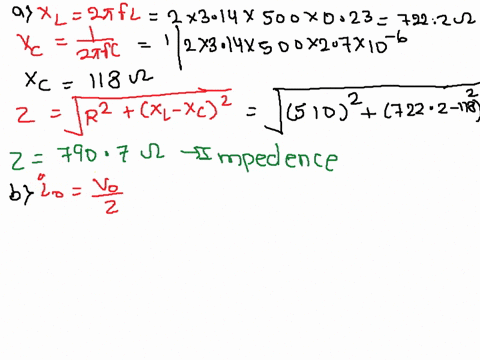 a) XL = 2πfL = 2×3.14×500×0.23 = 722.2 Ω
XC = 1/2πfC = 1/2×3.14×500×2.07×10^-6
XC = 118 Ω
Z = √R² + (XL-XC)² = √(510)² + (722.2-118)²
Z = 790.7 Ω → Impedence
b) i0 = V0/Z